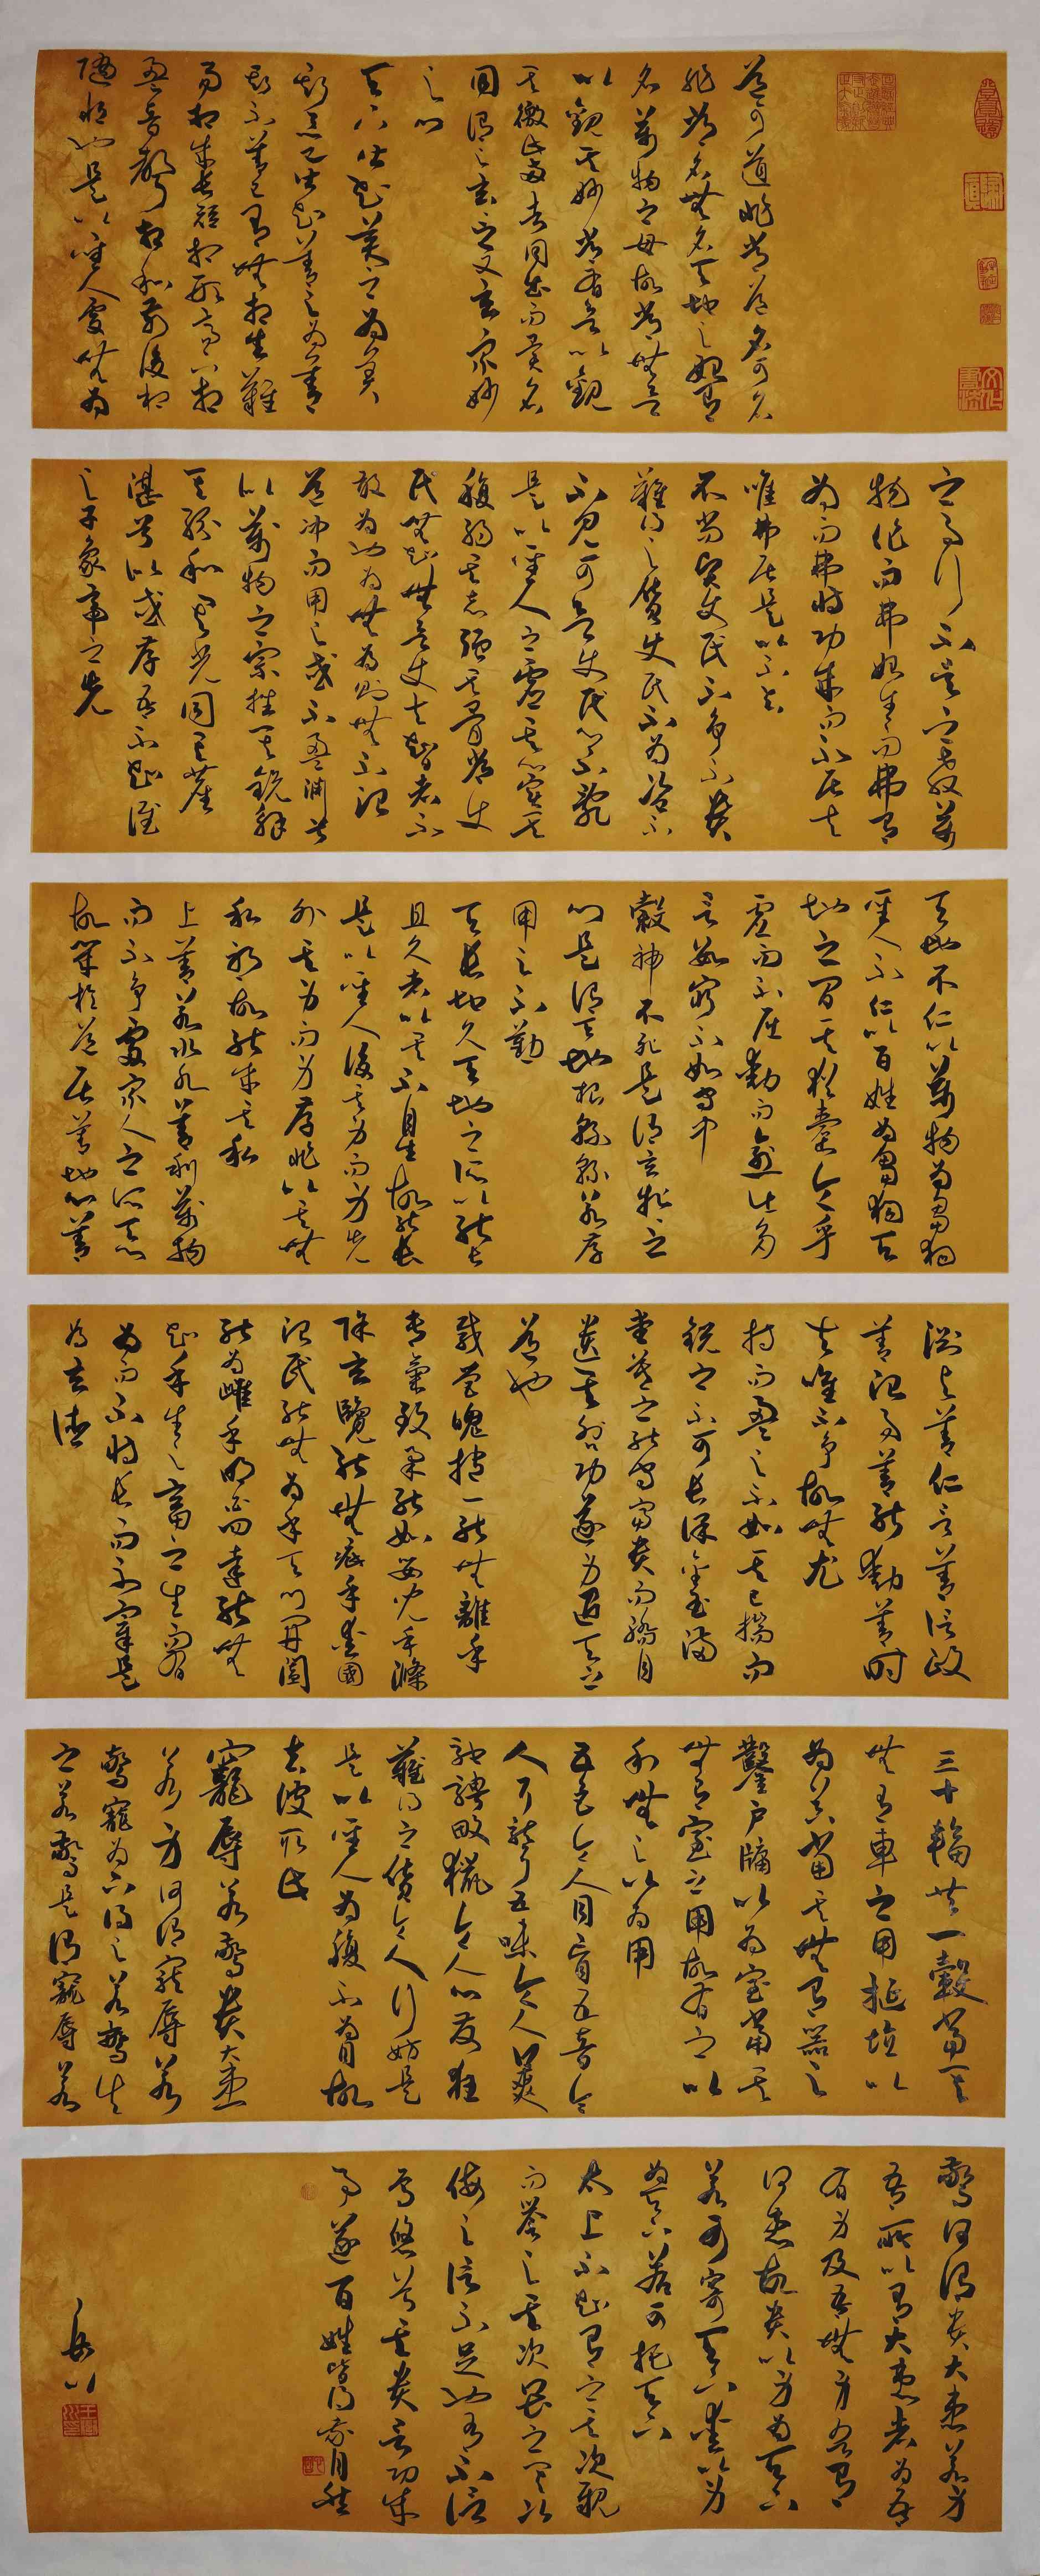 道可道非常道名可名
非常名無名天地之始有
名萬物之母故常無欲
以觀其妙常有欲以觀
其徼此兩者同出而異名
同謂之玄玄之又玄眾妙
之門
天下皆知美之為美
斯惡已皆知善之為善
斯不善已有無相生難
易相成長短相形高下相
盈音聲相和前後相
隨恒也是以聖人處無為
之事行不言之教萬
物作而弗始生而弗有
為而弗恃功成而不居夫
唯弗居是以不去
不尚賢使民不爭不貴
難得之貨使民不為盜不
不見可欲使民心不亂
是以聖人之虛其心實其
腹弱其志強其骨常使
民無知無欲使夫智者不
敢為也為無為則無不治
道沖而用之或不盈淵兮
似萬物之宗挫其銳解
其紛和其光同其塵
湛兮似或存吾不知誰
之子象帝之先
天地不仁以萬物為芻狗
聖人不仁以百姓為芻狗天
地之間其猶橐籥乎
虛而不屈動而愈出多
言數窮不如守中
穀神不死是謂玄牝之
門是謂天地根綿綿若存
用之不勤
天長地久天地之所以能長
且久者以其不自生故能長
是以聖人後其身而身先
外其身而身存非以其無
私邪故能成其私
上善若水水善利萬物
而不爭處眾人之所惡
故幾於道居善地心善
淵與善仁言善信政
善治事善能動善時
夫唯不爭故無尤
持而盈之不如其已揣而
銳之不可長保金玉滿
堂莫之能守富貴而驕自
遺其咎功遂身退天之
道也
載營魄抱一能無離乎
專氣致柔能如嬰兒乎滌
除玄覽能無疵乎愛國
治民能無為乎天門開闔
能為雌乎明白四達能無
知乎生之畜之生而不有
為而不恃長而不宰是
為玄德
三十輻共一轂當其
無有車之用埏埴以
為器當其無有器之
鑿戶牖以為室當其
無有室之用故有之以
利無之以為用
五色令人目盲五音令
人耳聾五味令人口爽
馳騁畋獵令人心發狂
難得之貨令人行妨是
是以聖人為腹不為目故
去彼取此
寵辱若驚貴大患
若身何謂寵辱若
驚寵為下得之若驚失
之若驚是謂寵辱若
驚何謂貴大患若身
吾所以有大患者為吾
有身及吾無身吾有
何患故貴以身為天下
若可寄天下愛以身
為天下若可托天下
太上不知有之其次親
而譽之其次畏之其次
侮之信不足也有不信
焉悠兮其貴言功成
事遂百姓皆謂我自然